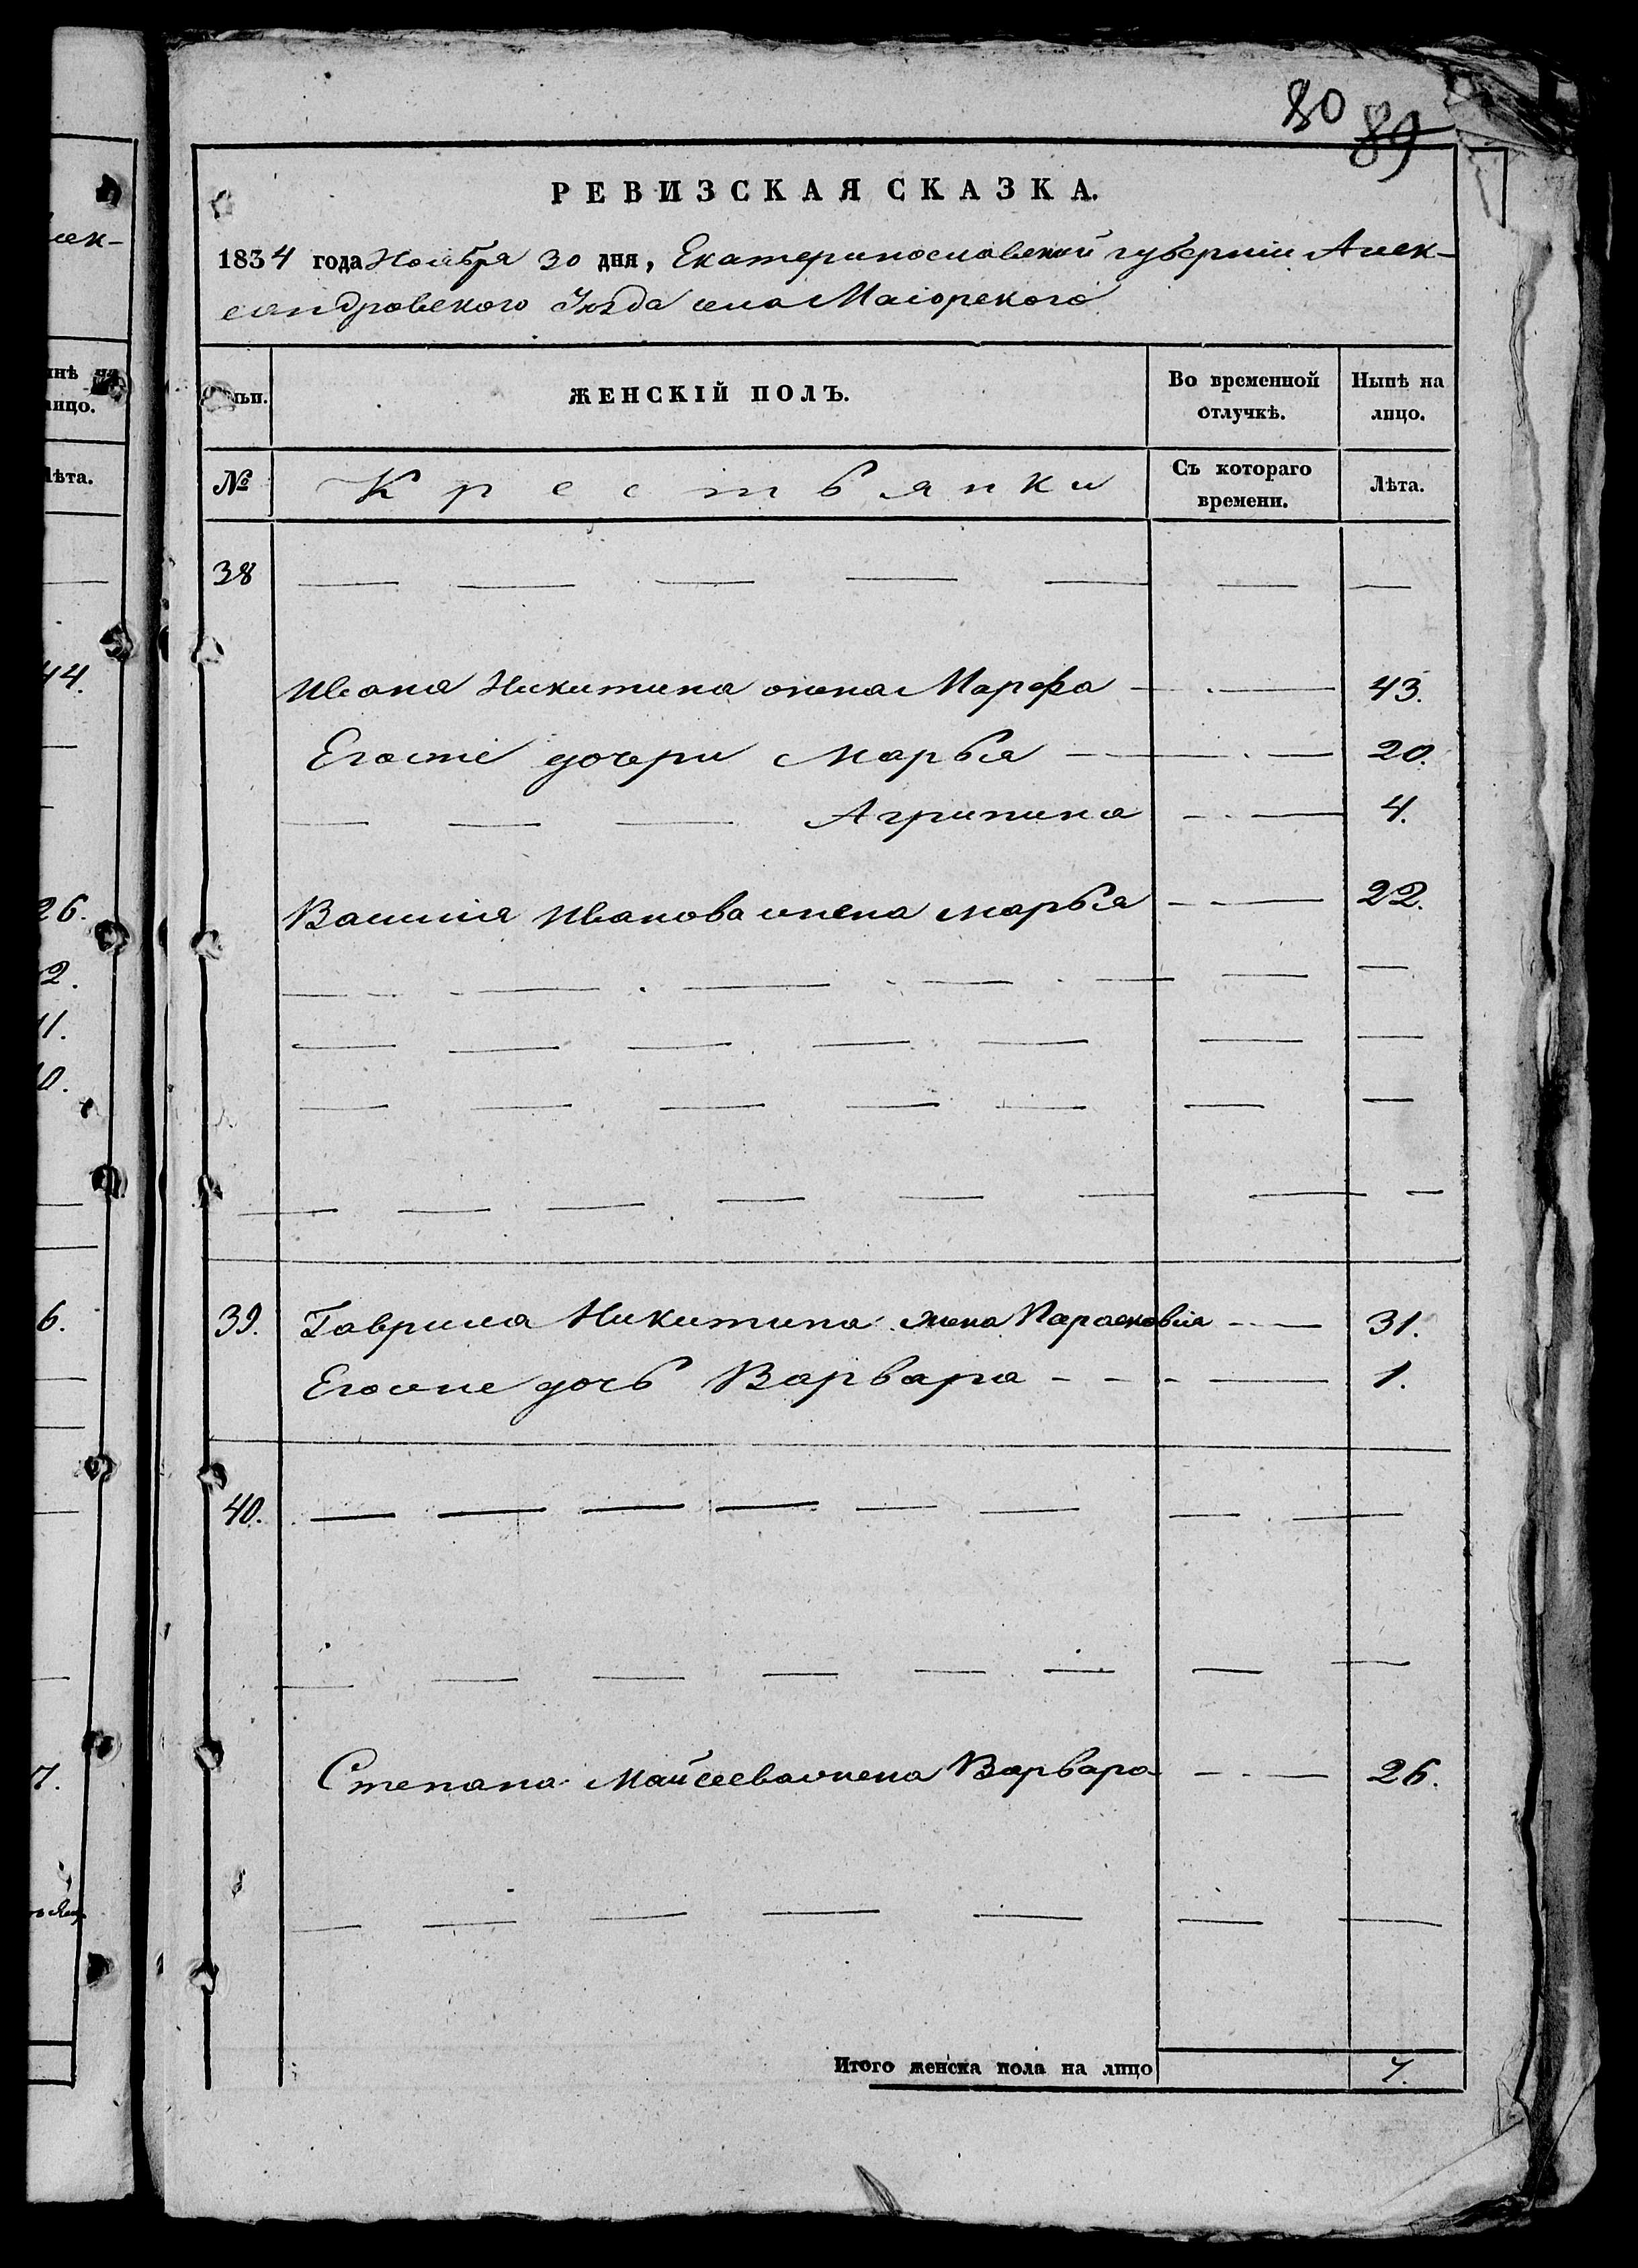 80 89
РЕВИЗСКАЯ СКАЗКА.
1834 года Ноября 30 дня, Екатеринославской губернии Алек-
сандровского Уезда села Маіорского
ЖЕНСКІЙ ПОЛЪ.
Во временной отлучкѣ.
Нынѣ на лицо.
№
Крестьянки
Съ котораго времени.
Лѣта.
38
Ивана Никитина жена Марфа 43.
Егоже дочери Марья 20.
Агрипина 4.
Василия Иванова жена марья 22.
39. Гаврила Никитина жена Парасковия 31.
Егоже дочь Варвара 1.
40.
Степана Майсеева жена Варвара 26.
Итого женска пола на лицо 7.
лек-
лицо.
Лѣта.
44.
26.
2.
11.
10.
6.
7.